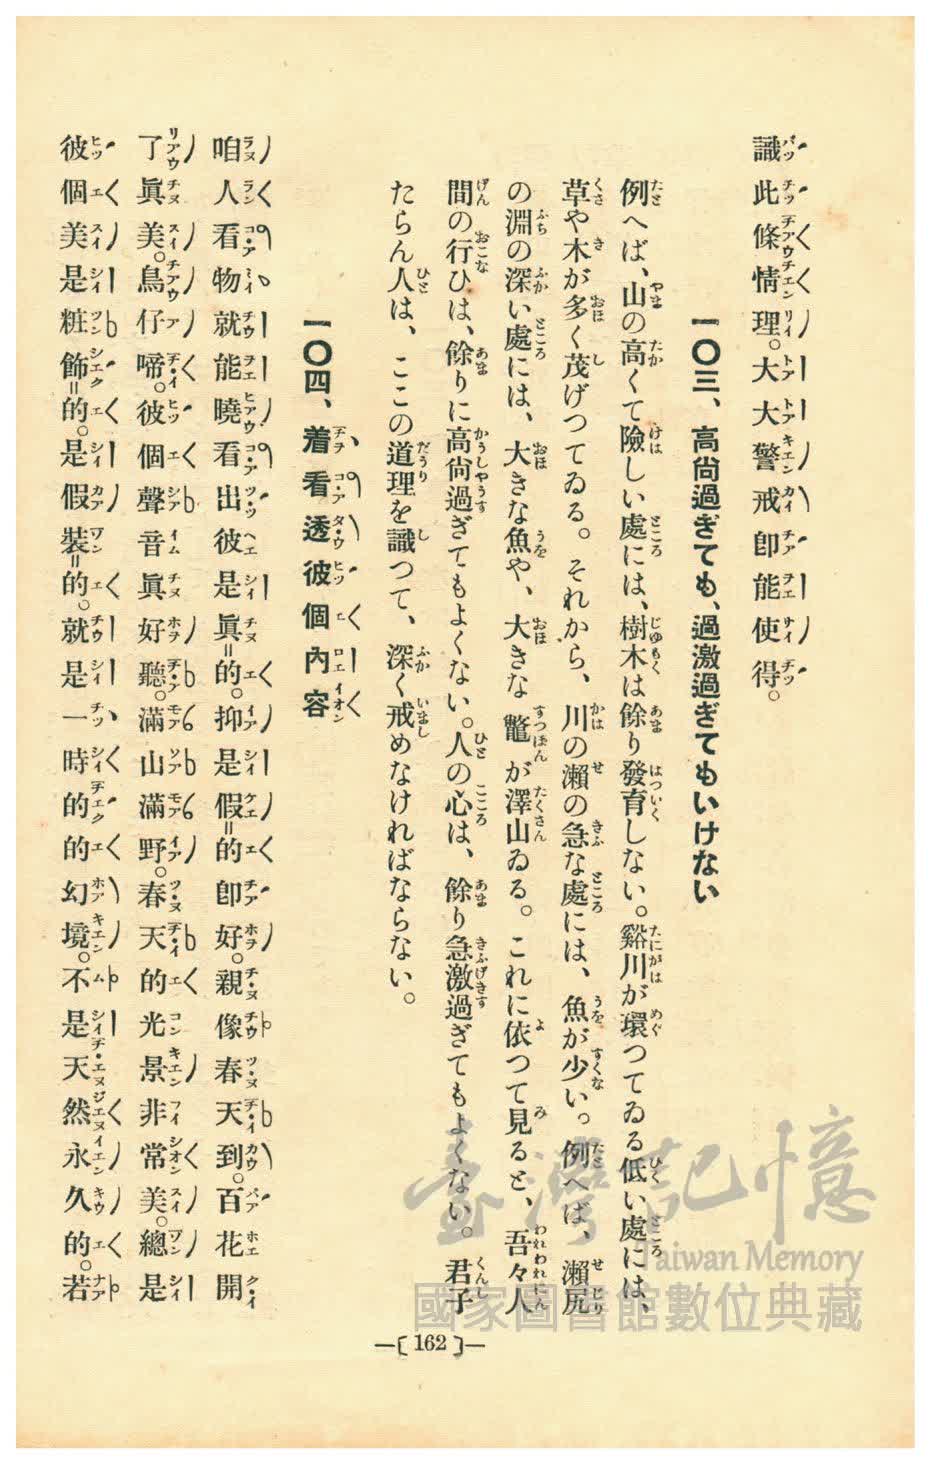 識此條情理。大大警戒卽能使得。
一〇三、高尙過ぎても、過激過ぎてもいけない
例へば、山の高くて險しい處には、樹木は餘り發育しない。谿川が環つてゐる低い處には、
草や木が多く茂げつてゐる。それから、川の瀨の急な處には、魚が少い。例へば、瀨尻
の淵の深い處には、大きな魚や、大きな鼈が澤山ゐる。これに依つて見ると、吾々人
間の行ひは、餘りに高尙過ぎてもよくない。人の心は、餘り急激過ぎてもよくない。君子
たらん人は、ここの道理を識つて、深く戒めなければならない。
一〇四、着看透彼個內容
咱人看物就能曉看出彼是眞=的。抑是假=的卽好。親像春天到。百花開
了眞美。鳥仔啼。彼個聲音眞好聽。滿山滿野。春天的光景非常美。總是
彼個美是粧飾=的。是假裝=的。就是一時的的幻境。不是天然永久的。若
—[162]—
臺灣記憶
Taiwan Memory
國家圖書館數位典藏